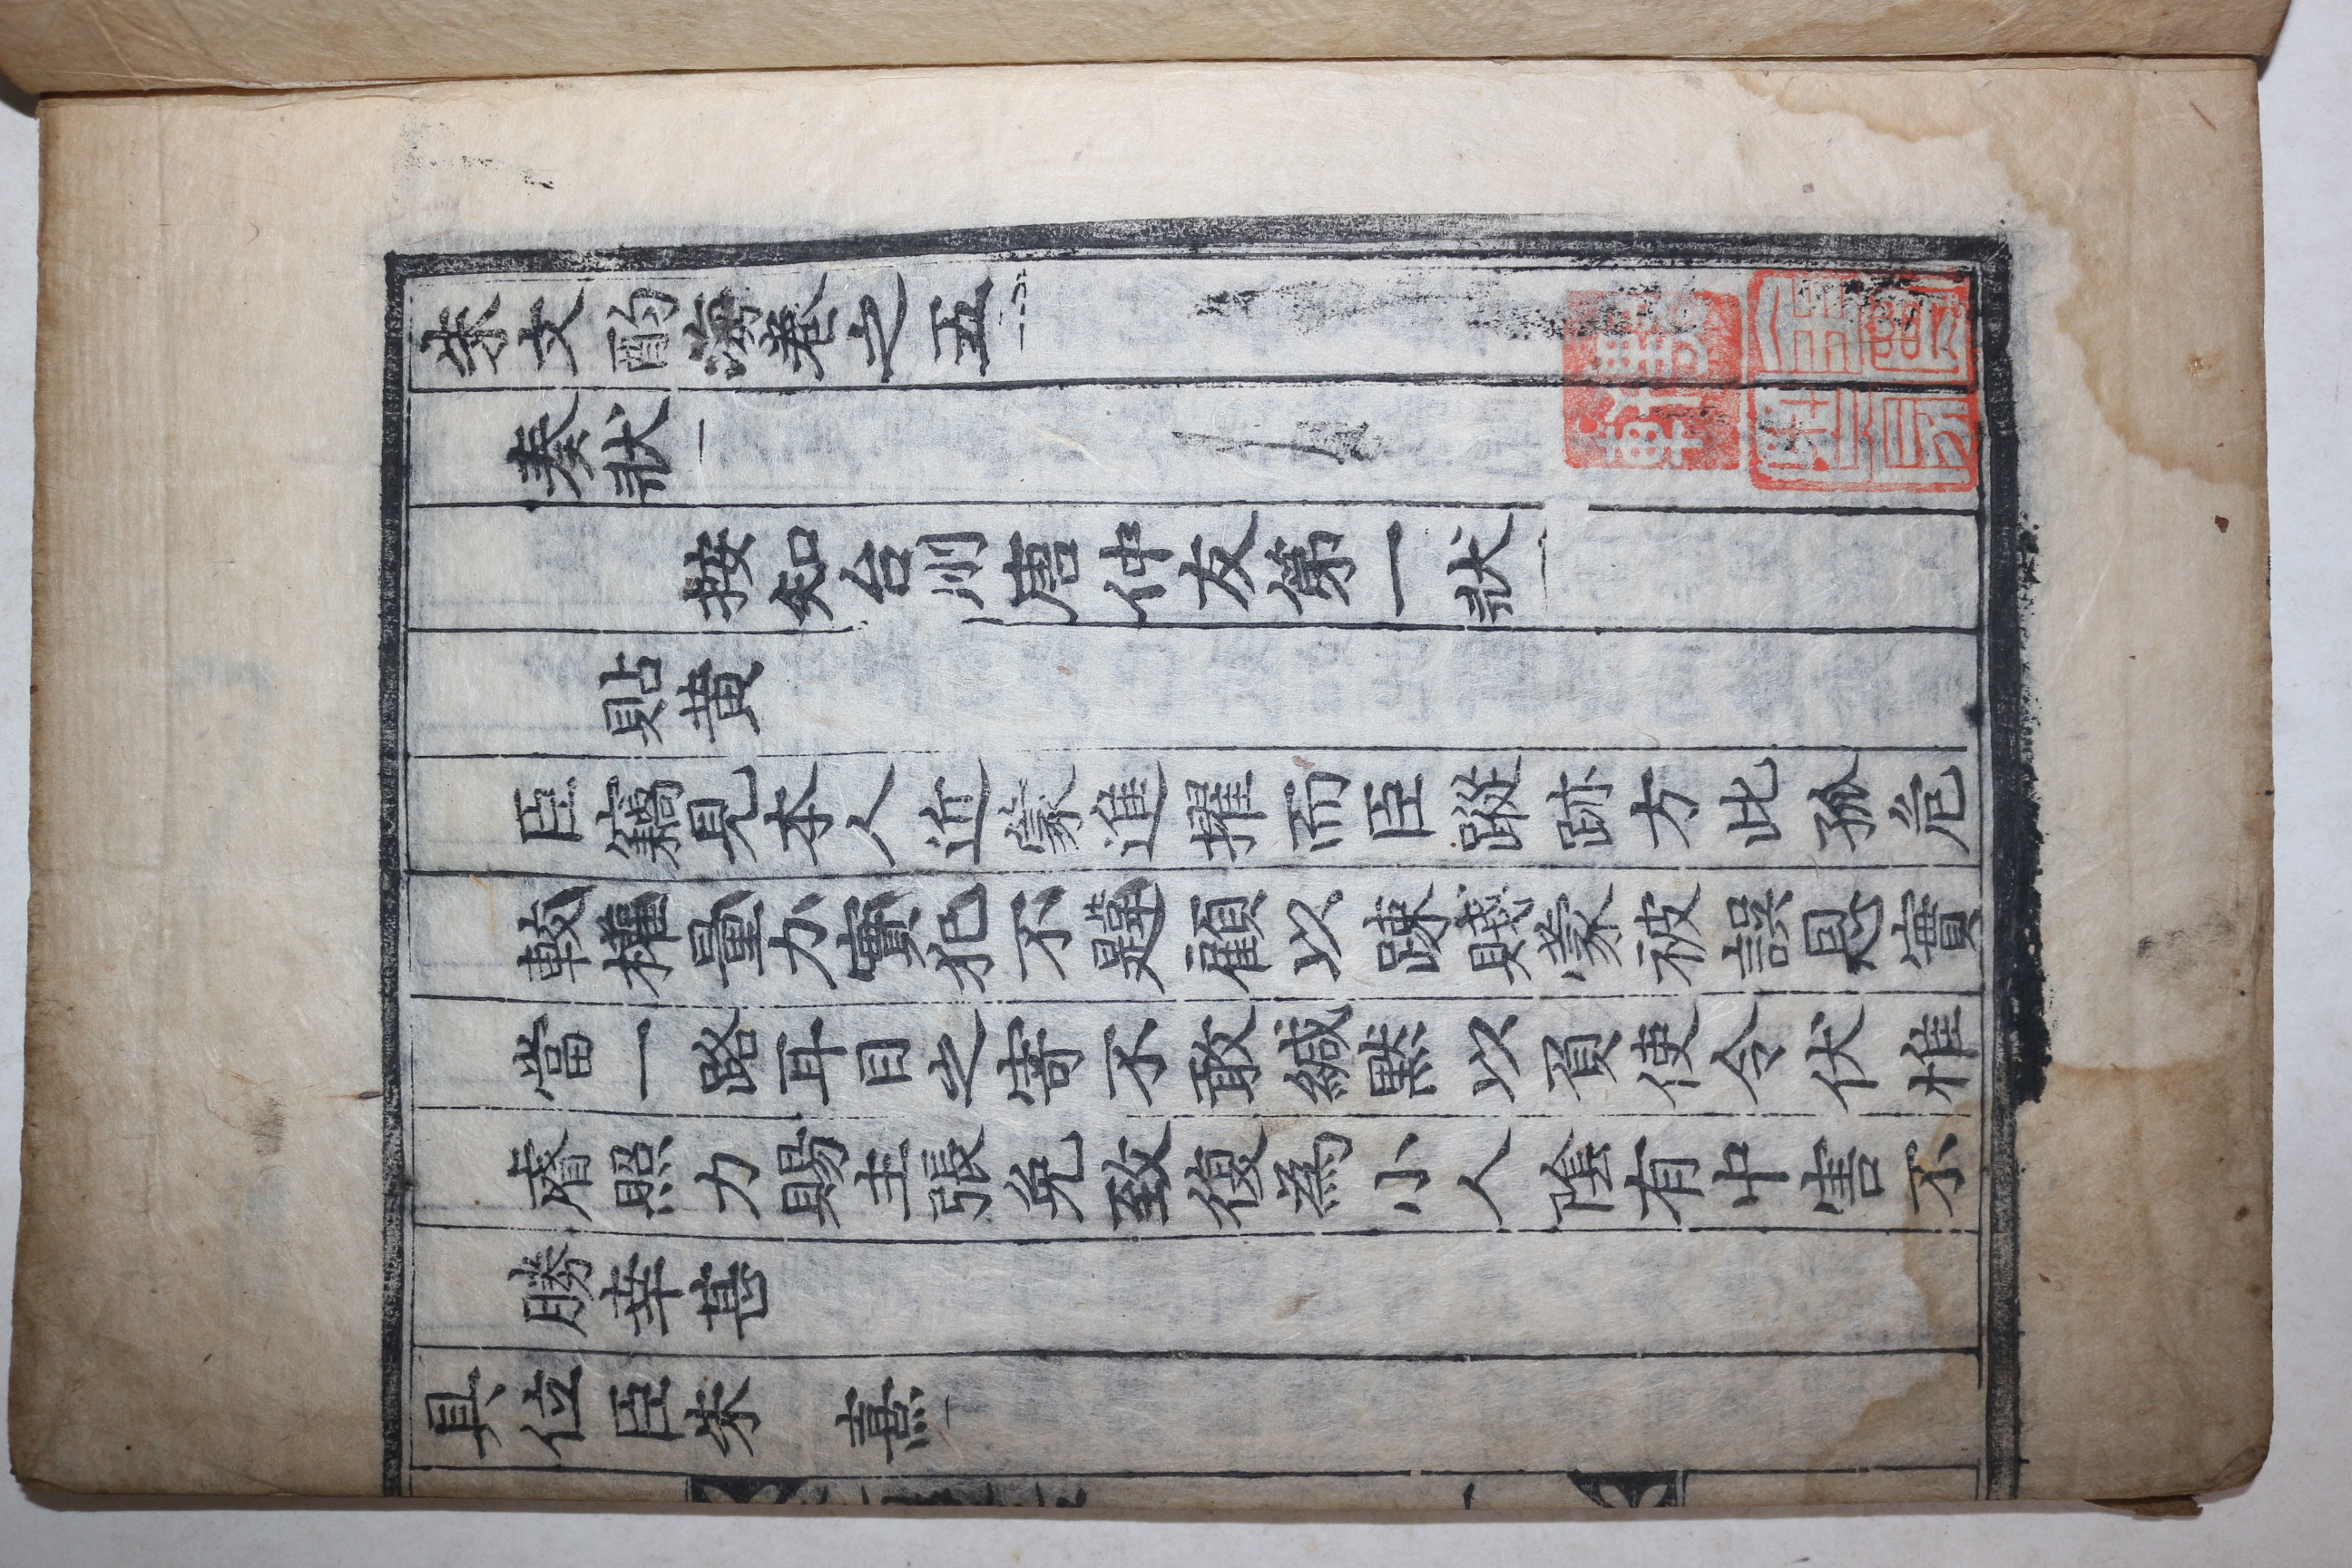 朱文酌海卷之五
奏狀
按知台州唐仲友第一狀
貼黃
臣竊見本人近蒙進擢而臣蹤跡方此孤危
較權量力實犯不韙顧以踈賤蒙被誤恩實
當一路耳目之寄不敢緘默以負使令伏惟
睿照力賜主張免致復爲小人陰有中害不
勝幸甚
具位臣朱 熹